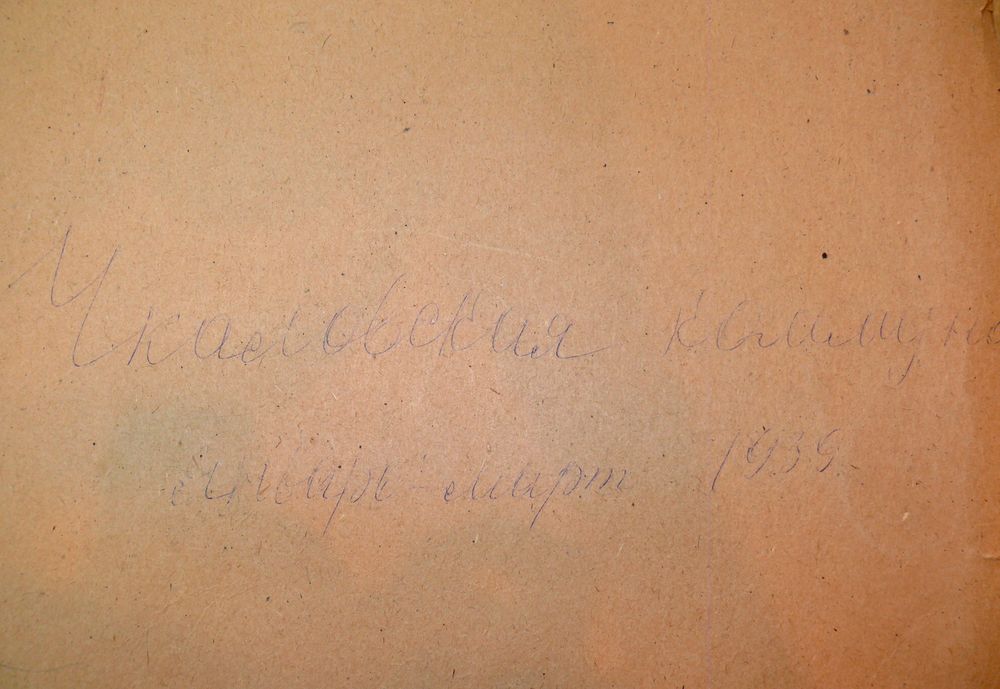 Чкаловская коммуна
январь-март 1939